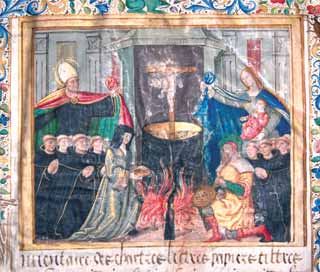 Inventaire des chartres lettres papiers tiltres